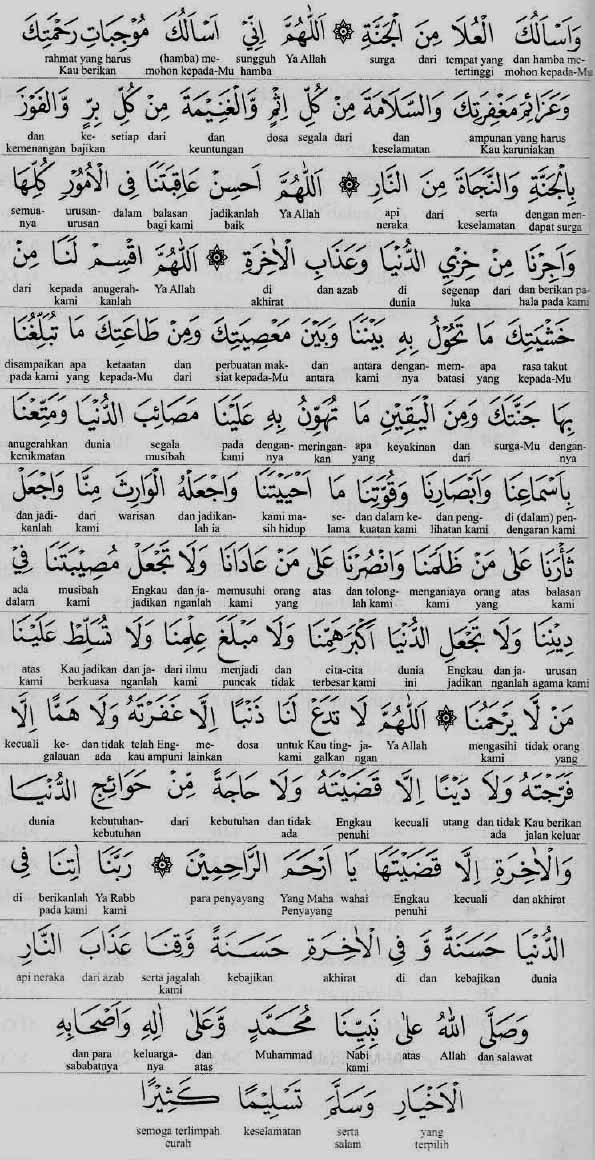 وَاَسْأَلُكَ الْعُلَا مِنَ الْجَنَّةِ ۞ اَللّٰهُمَّ اِنِّيْ اَسْأَلُكَ مُوْجِبَاتِ رَحْمَتِكَ
dan hamba me- tempat yang dari surga Ya Allah sungguh (hamba) me- rahmat yang harus
mohon kepada-Mu tertinggi hamba mohon kepada-Mu Kau berikan
وَعَزَائِمَ مَغْفِرَتِكَ وَالسَّلَامَةَ مِنْ كُلِّ اِثْمٍ وَّالْغَنِيْمَةَ مِنْ كُلِّ بِرٍّ وَّالْفَوْزَ
ampunan yang harus dan dari segala dosa dan dari setiap ke- dan
Kau karuniakan keselamatan keuntungan bajikan kemenangan
بِالْجَنَّةِ وَالنَّجَاةَ مِنَ النَّارِ ۞ اَللّٰهُمَّ اَحْسِنْ عَاقِبَتَنَا فِى الْاُمُوْرِ كُلِّهَا
dengan men- serta dari api Ya Allah jadikanlah balasan dalam urusan- semua-
dapat surga keselamatan neraka baik bagi kami urusan nya
وَاَجِرْنَا مِنْ خِزْيِ الدُّنْيَا وَعَذَابِ الْاٰخِرَةِ ۞ اَللّٰهُمَّ اقْسِمْ لَنَا مِنْ
dan berikan pa- dari segenap di dan azab di Ya Allah anugerah- kepada dari
hala pada kami luka dunia akhirat kanlah kami
خَشْيَتِكَ مَا تَحُوْلُ بِهِ بَيْنَنَا وَبَيْنَ مَعْصِيَتِكَ وَمِنْ طَاعَتِكَ مَا تُبَلِّغُنَا
rasa takut apa mem- dengan- antara dan perbuatan mak- dan ketaatan apa disampaikan
kepada-Mu yang batasi nya kami antara siat kepada-Mu dari kepada-Mu yang pada kami
بِهَا جَنَّتَكَ وَمِنَ الْيَقِيْنِ مَا تُهَوِّنُ بِهِ عَلَيْنَا مَصَائِبَ الدُّنْيَا وَمَتِّعْنَا
dengan- surga-Mu dan keyakinan apa meringan- dengan- pada segala dunia anugerahkan
nya dari yang kan nya kami musibah kenikmatan
بِاَسْمَاعِنَا وَاَبْصَارِنَا وَقُوَّتِنَا مَا اَحْيَيْتَنَا وَاجْعَلْهُ الْوَارِثَ مِنَّا وَاجْعَلْ
di (dalam) pen- dan peng- dan dalam ke- se- kami ma- dan jadikan- warisan dari dan jadi-
dengaran kami lihatan kami kuatan kami lama sih hidup lah ia kami kanlah
ثَأْرَنَا عَلٰى مَنْ ظَلَمَنَا وَانْصُرْنَا عَلٰى مَنْ عَادَانَا وَلَا تَجْعَلْ مُصِيْبَتَنَا فِيْ
balasan atas orang menganiaya dan tolong- atas orang memusuhi dan ja- Engkau musibah ada
kami yang kami lah kami yang kami nganlah jadikan kami dalam
دِيْنِنَا وَلَا تَجْعَلِ الدُّنْيَا اَكْبَرَ هَمِّنَا وَلَا مَبْلَغَ عِلْمِنَا وَلَا تُسَلِّطْ عَلَيْنَا
urusan dan ja- Engkau dunia cita-cita dan menjadi dari ilmu dan ja- Kau jadikan atas
agama kami nganlah jadikan ini terbesar kami tidak puncak kami nganlah berkuasa kami
مَنْ لَّا يَرْحَمُنَا ۞ اَللّٰهُمَّ لَا تَدَعْ لَنَا ذَنْبًا اِلَّا غَفَرْتَهُ وَلَا هَمًّا اِلَّا
orang tidak mengasihi Ya Allah ja- Kau ting- untuk dosa me- telah Eng- dan tidak ke- kecuali
yang kami ngan galkan kami lainkan kau ampuni ada galauan
فَرَّجْتَهُ وَلَا دَيْنًا اِلَّا قَضَيْتَهُ وَلَا حَاجَةً مِّنْ حَوَائِجِ الدُّنْيَا
Kau berikan dan tidak utang kecuali Engkau dan tidak kebutuhan dari kebutuhan- dunia
jalan keluar ada penuhi ada kebutuhan
وَالْاٰخِرَةِ اِلَّا قَضَيْتَهَا يَا اَرْحَمَ الرَّاحِمِيْنَ ۞ رَبَّنَا اٰتِنَا فِى
dan akhirat kecuali Engkau wahai Yang Maha para penyayang Ya Rabb berikanlah di
penuhi Penyayang kami pada kami
الدُّنْيَا حَسَنَةً وَّ فِي الْاٰخِرَةِ حَسَنَةً وَّقِنَا عَذَابَ النَّارِ
dunia kebajikan dan di akhirat kebajikan serta jagalah dari azab api neraka
kami
وَصَلَّى اللّٰهُ عَلٰى نَبِيِّنَا مُحَمَّدٍ وَّعَلٰى اٰلِهِ وَاَصْحَابِهِ
dan salawat Allah atas Nabi Muhammad dan keluarga- dan para
kami atas nya sababatnya
الْاَخْيَارِ وَسَلَّمَ تَسْلِيْمًا كَثِيْرًا
yang serta keselamatan semoga terlimpah
terpilih salam curah